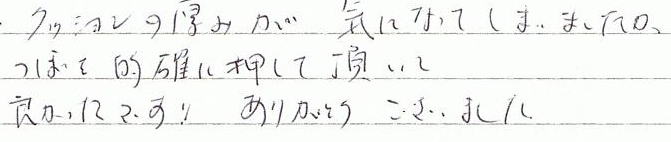 ・クッションの厚みが 気になってしまいましたが、
つぼを的確に押して頂いて
良かったです!! ありがとうございました